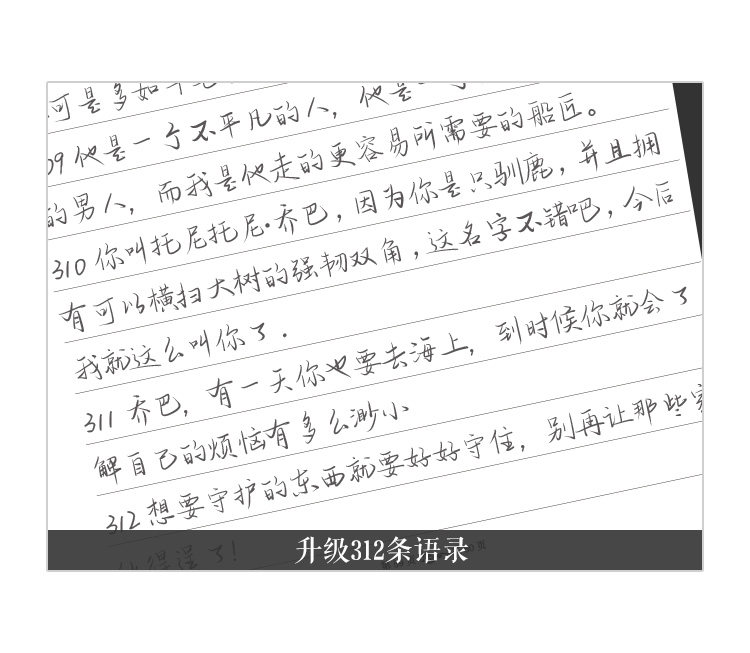 可是多如牛毛
09他是一个不平凡的人，他是
的男人，而我是他走的更容易所需要的船匠。
310 你叫托尼托尼·乔巴，因为你是只驯鹿，并且拥
有可以横扫大树的强韧双角，这名字不错吧，今后
我就这么叫你了．
311 乔巴，有一天你也要去海上，到时候你就会了
解自己的烦恼有多么渺小
312 想要守护的东西就要好好守住，别再让那些家
他得逞了！
升级312条语录